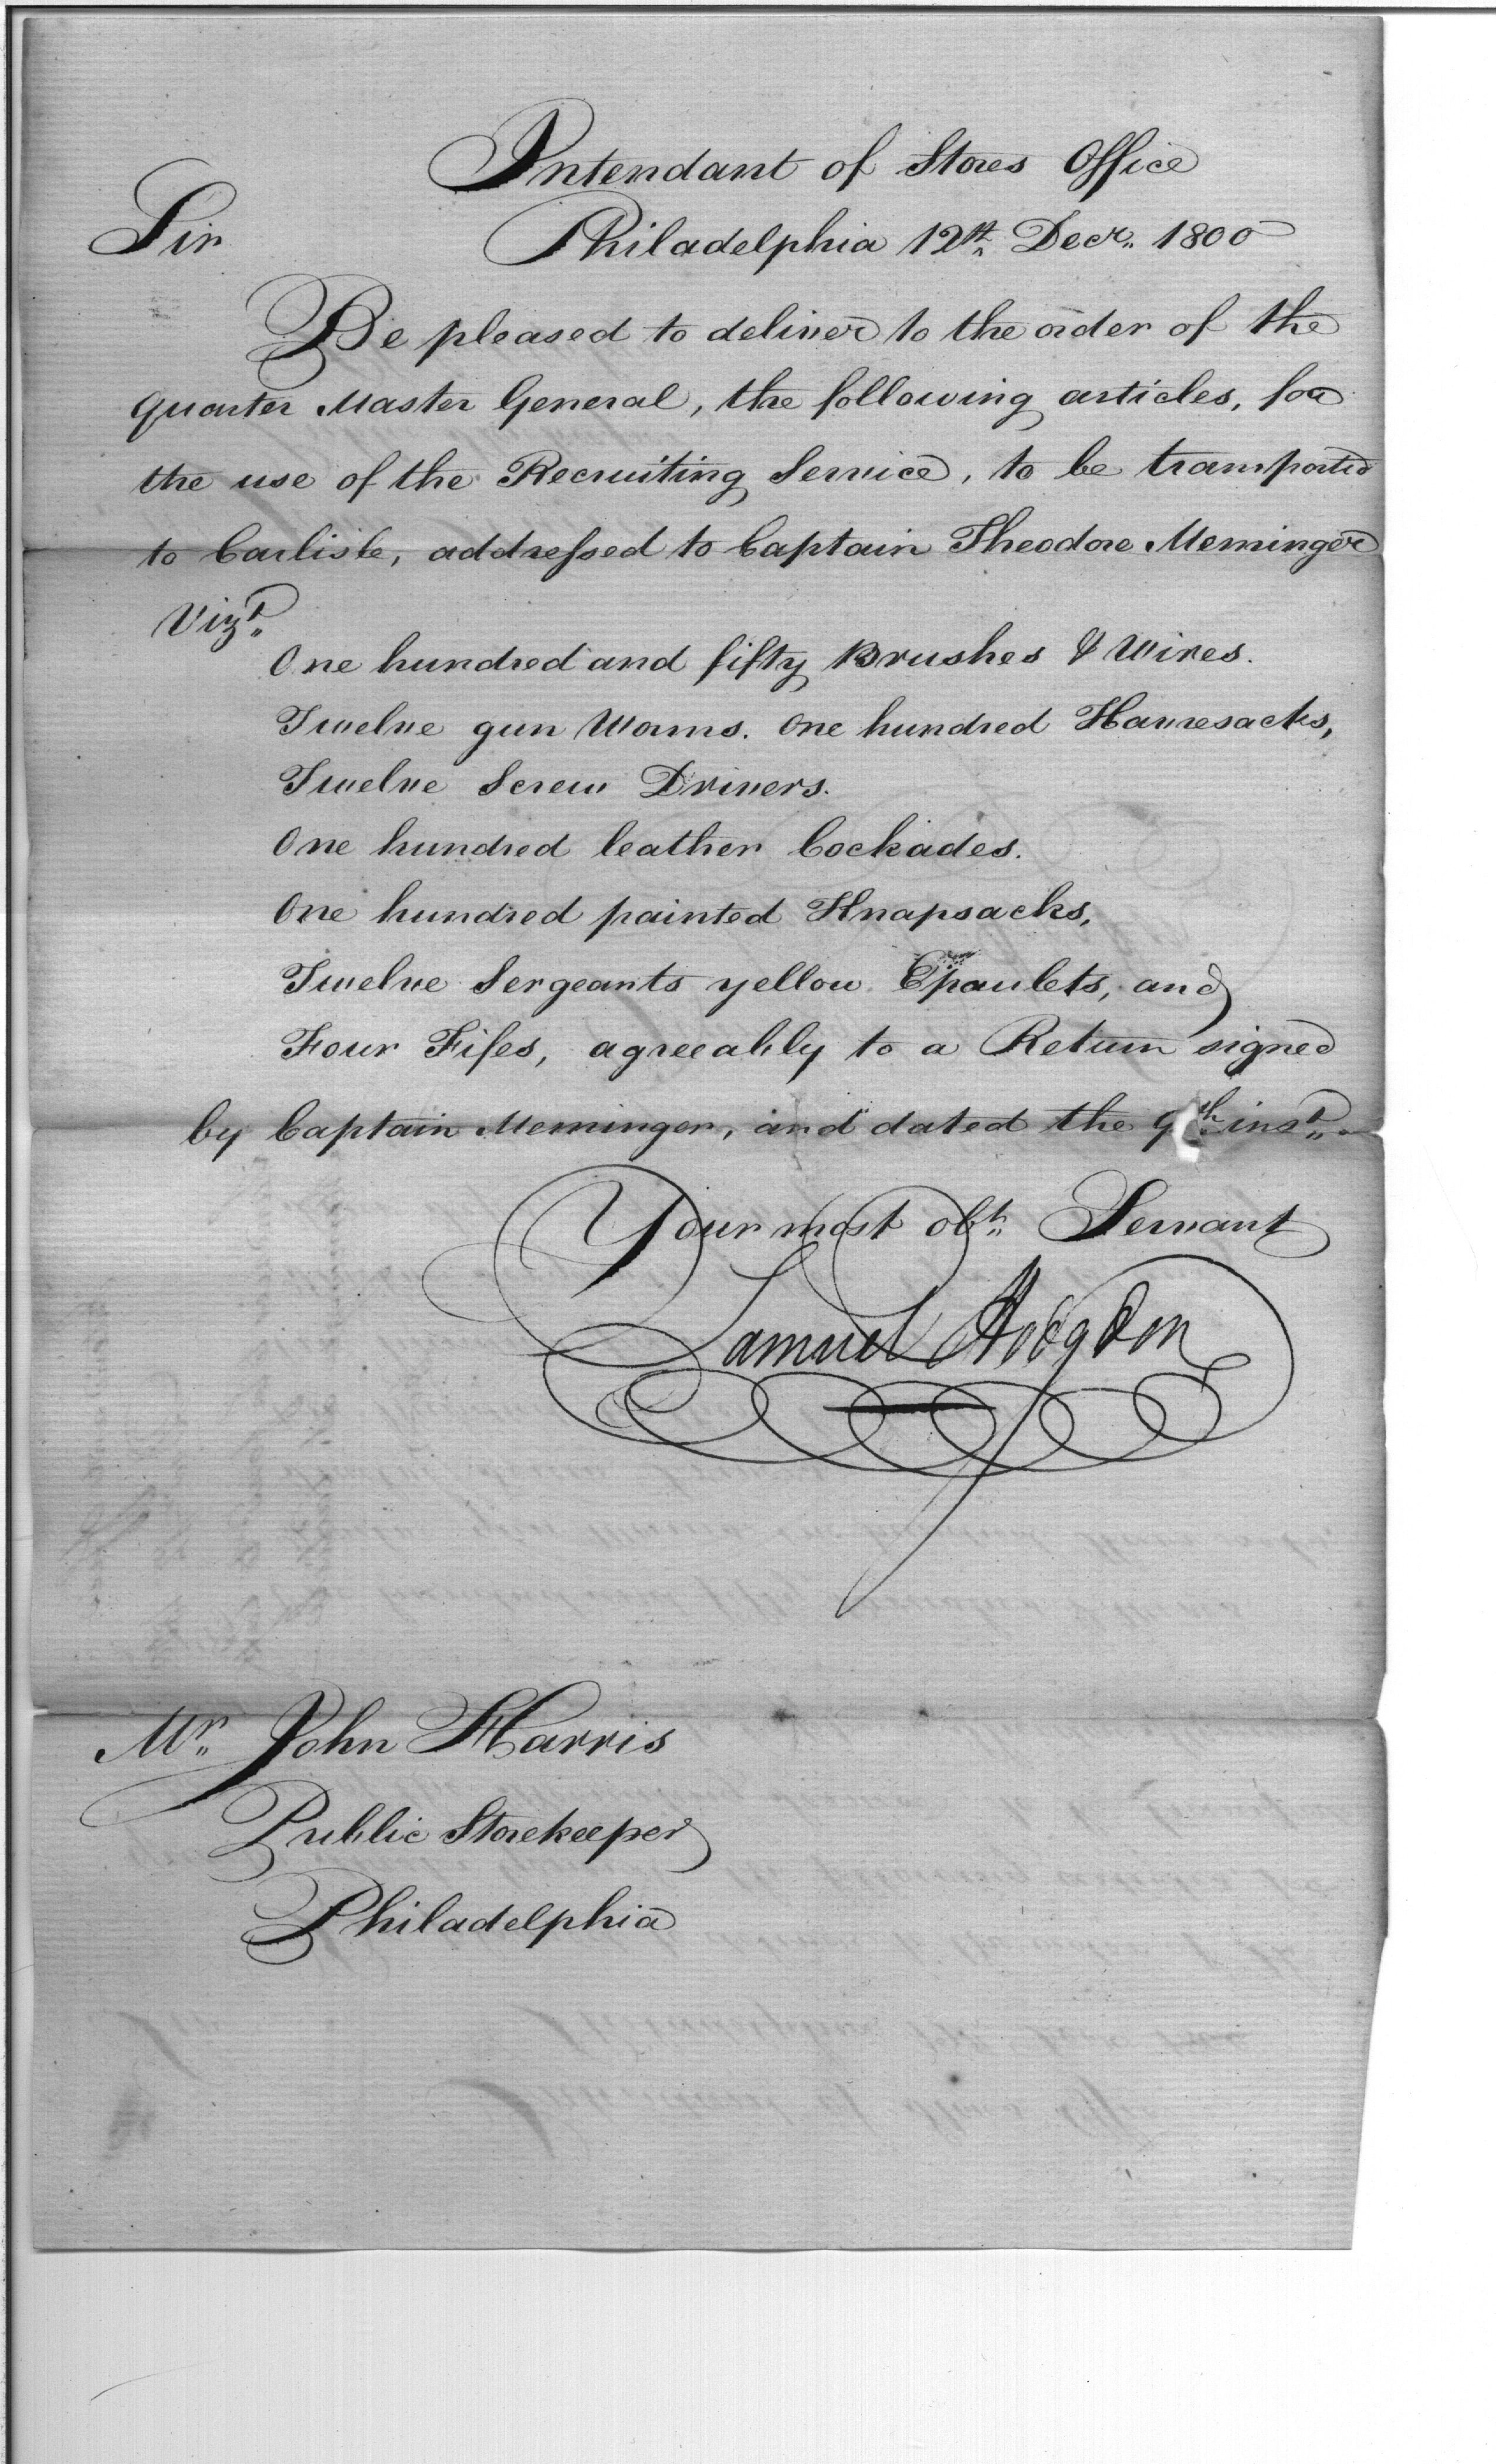 Intendant of Stores Office
Sir Philadelphia 12th Decr. 1800
Be pleased to deliver to the order of the
Quarter Master General, the following articles, for
the use of the Recruiting Service, to be transported
to Carlisle, addressed to Captain Theodore Meminger
Vizt.
One hundred and fifty Brushes & Wires.
Twelve gun Worms. One hundred Haversacks,
Twelve Screw Drivers.
One hundred leather Cockades.
One hundred painted Knapsacks,
Twelve Sergeants yellow Epaulets, and
Four Fifes, agreeably to a Return signed
by Captain Meminger, and dated the 9th inst.
Your most obt. Servant
Samuel Hodgdon
Mr. John Harris
Public Storekeeper
Philadelphia